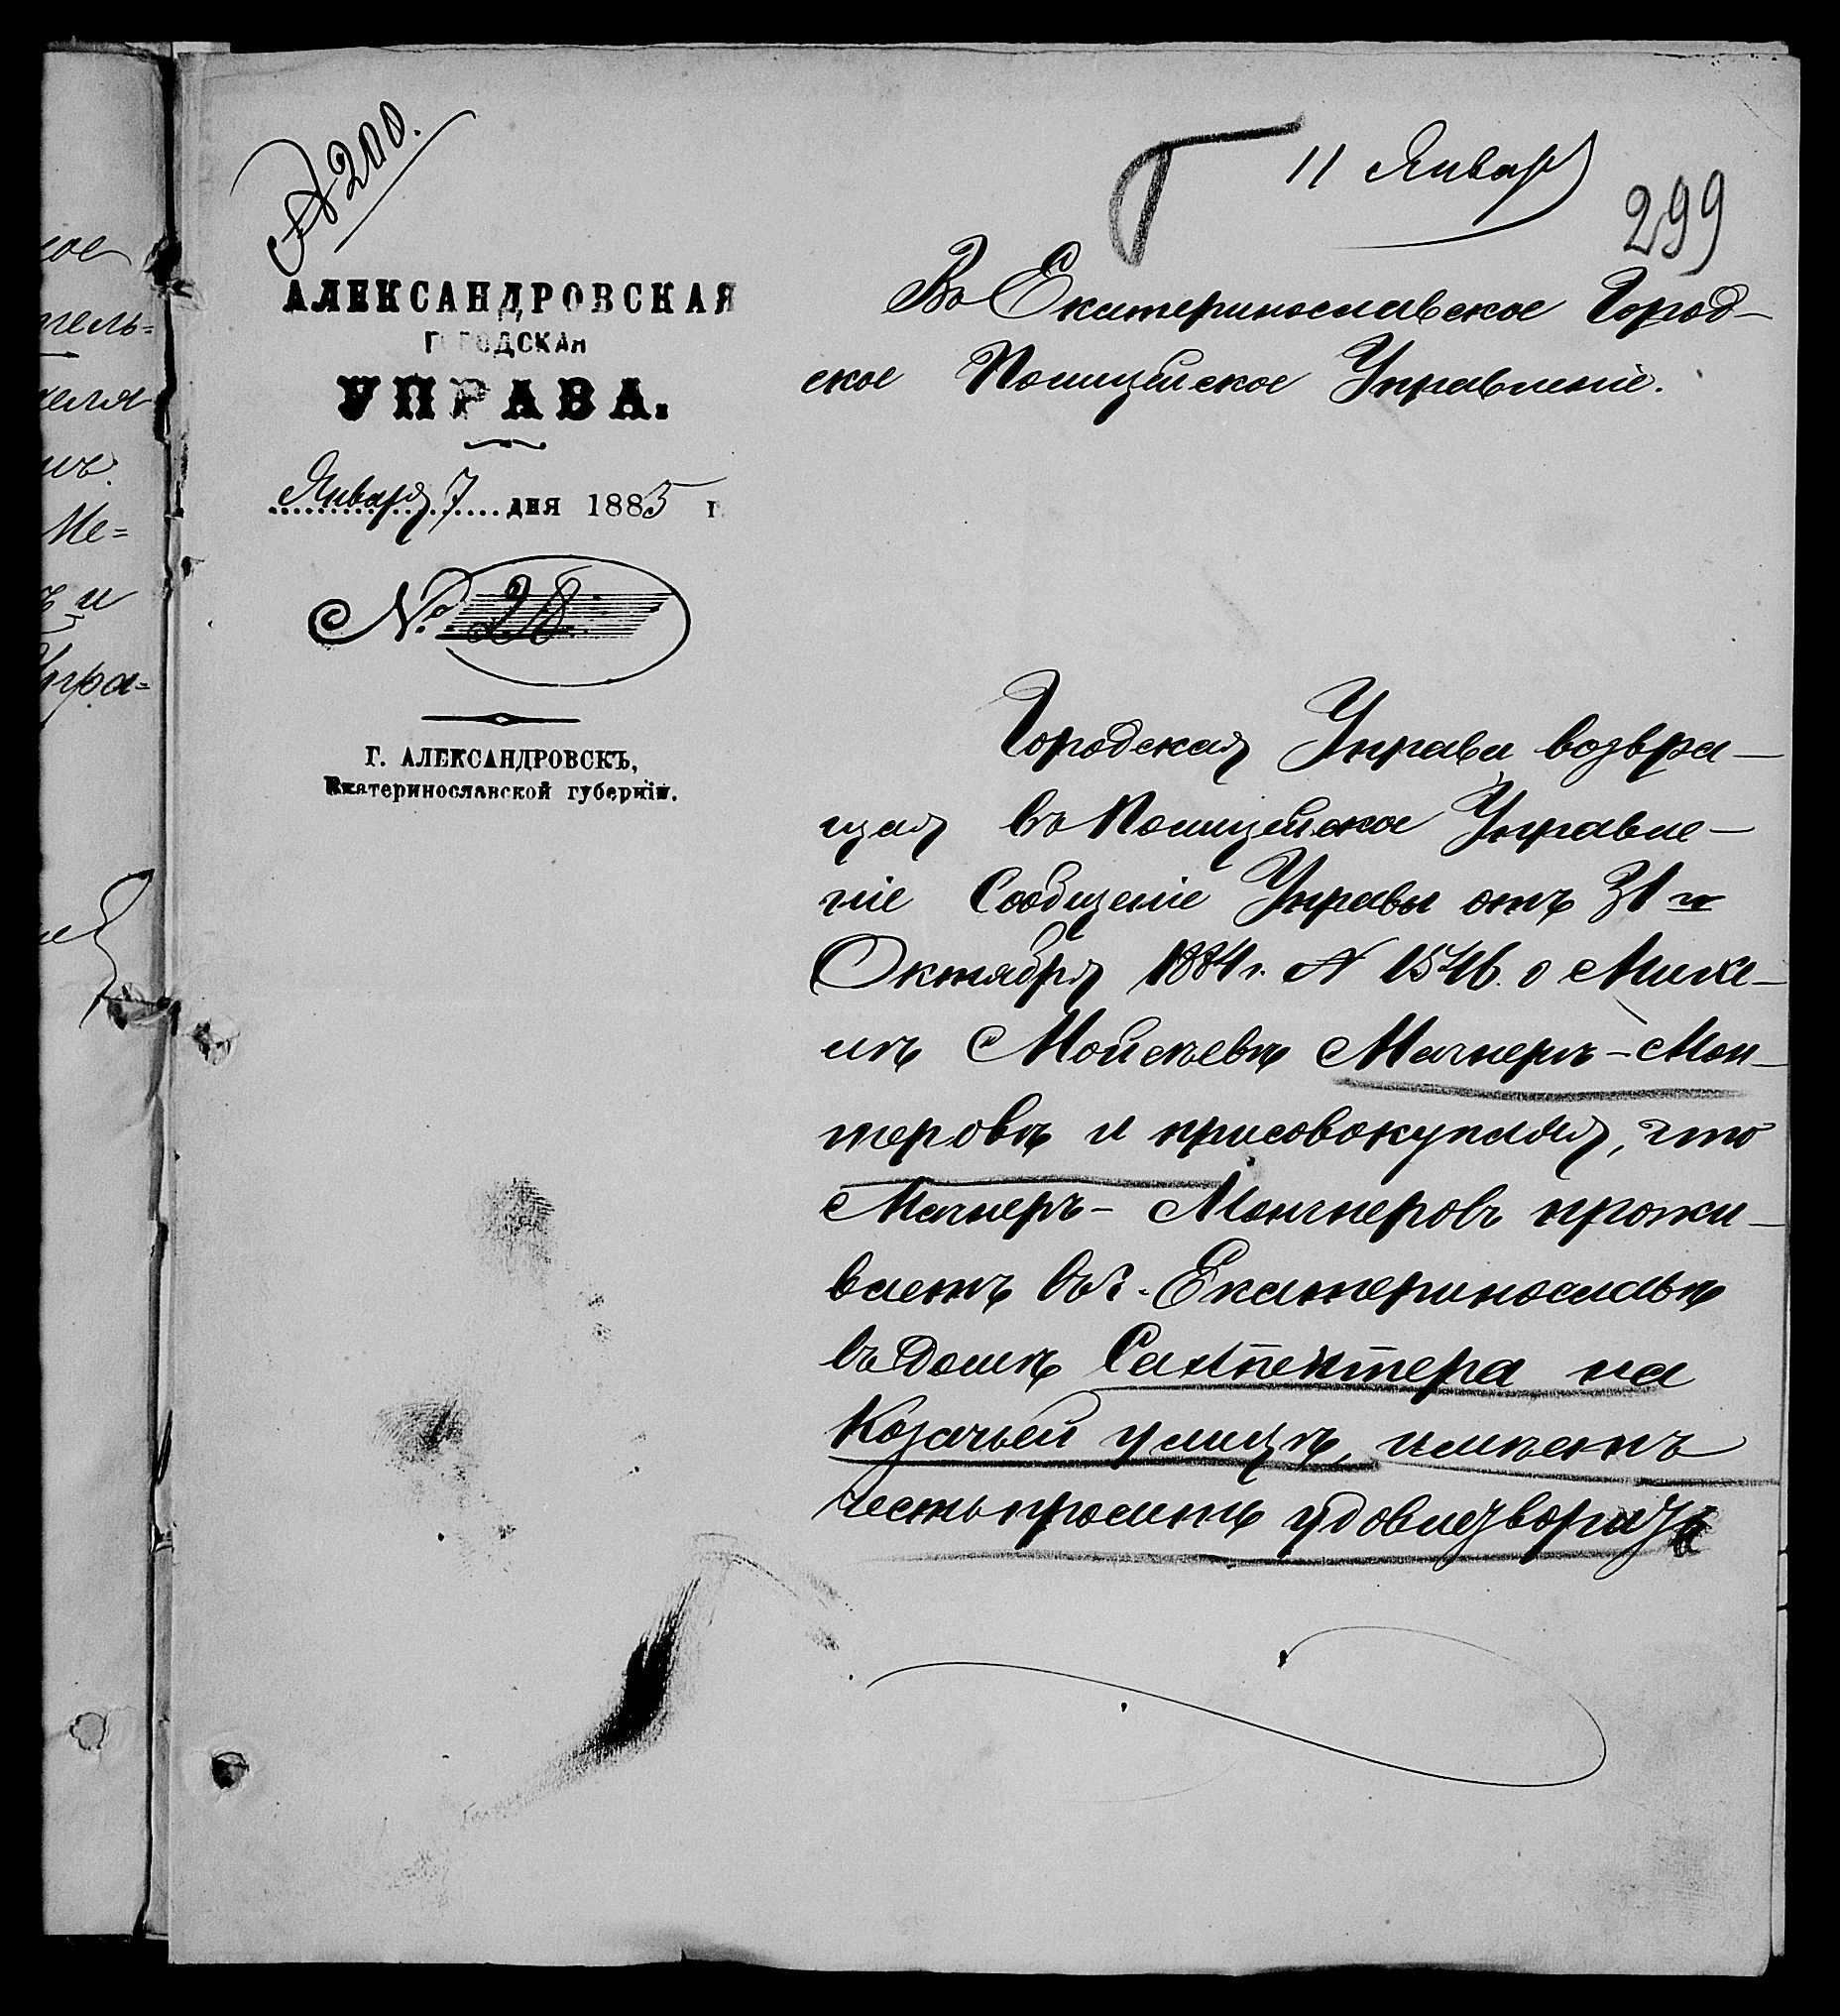 № 200.
11 Января
299
АЛЕКСАНДРОВСКАЯ
ГОРОДСКАЯ
УПРАВА.
Января 7 дня 1885 г.
№ 28
Г. АЛЕКСАНДРОВСКЪ,
Екатеринославской губерніи.
Въ Екатеринославское Город-
ское Полицейское Управленіе.
Городская Управа возвра-
щая въ Полицейское Управле-
ніе Сообщеніе Управы отъ 31
Октября 1884 г. № 1546. о Михе-
лѣ Мойсѣевѣ Магнеръ-Мон-
теровѣ и присовокупляя, что
Магнеръ- прожи-
ваетъ въ г. Екатеринославѣ
въ домѣ на
Козачьей улицѣ, имѣетъ
честь просить удовлетворить
ое
тель=
хеля
мъ.
Ме=
и
Упра=